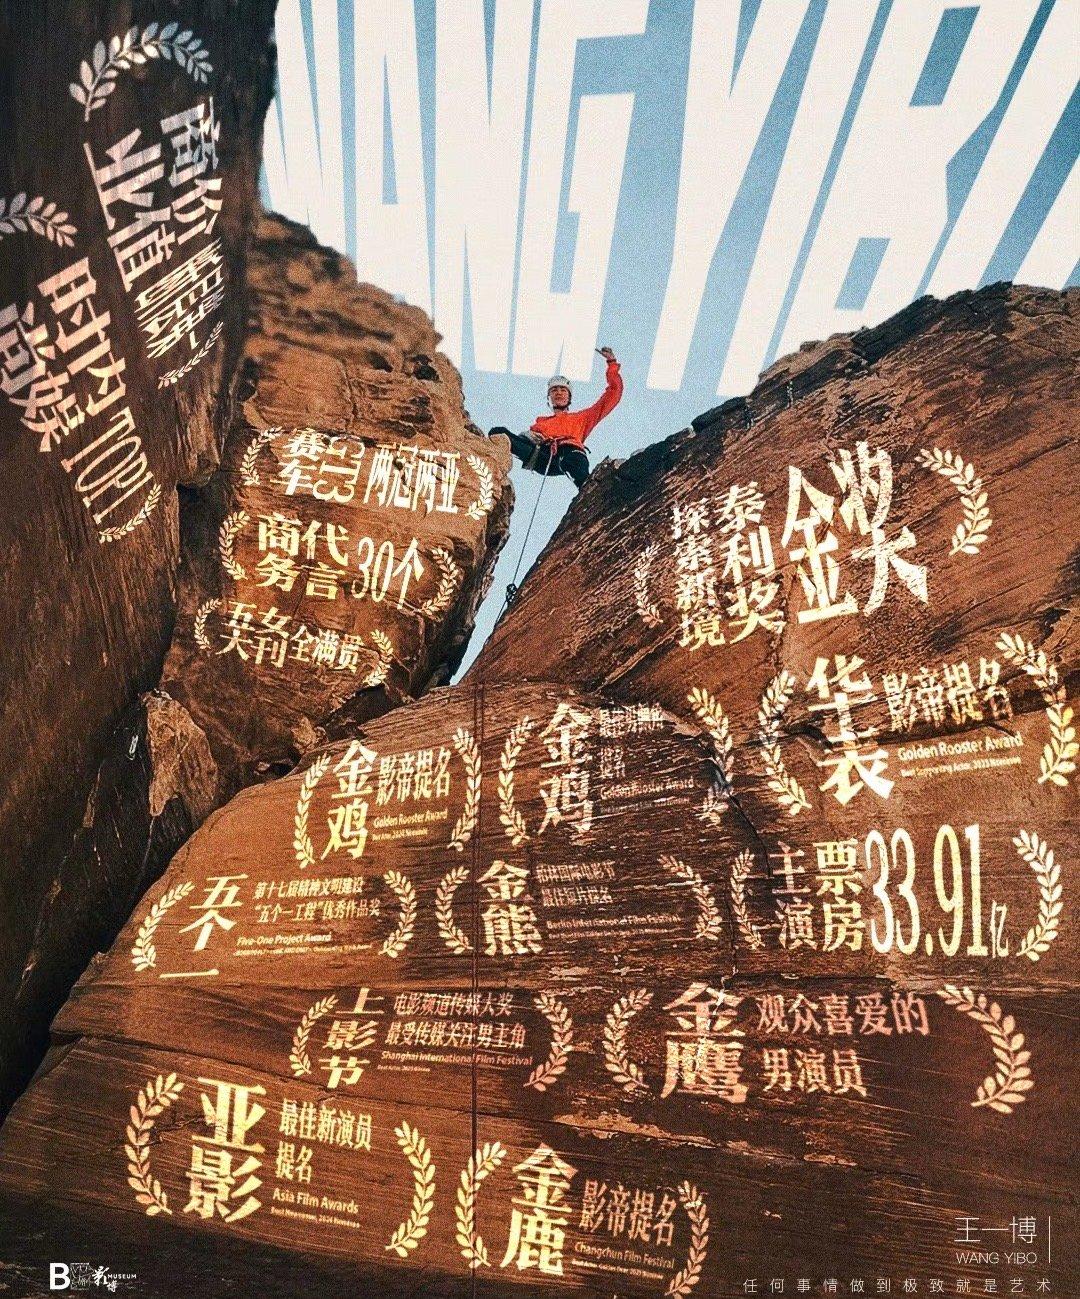 WANG YIBO
商业
价值
时尚
文娱
TOP1
赛车
513
两冠两亚
商务
代言
30个
五大
女刊
全满贯
探索新境
泰利奖
金奖
华表
影帝提名
Golden Rooster Award
金鸡
影帝提名
Golden Rooster Award
金鸡
提名
Golden Rooster Award
五个一
第十七届精神文明建设
“五个一工程”优秀作品奖
Five-One Project Award
金熊
柏林国际电影节
最佳短片提名
Berlin International Film Festival
主演
票房
33.91亿
上影节
电影频道传媒大奖
最受传媒关注男主角
Shanghai International Film Festival
金鹰
观众喜爱的
男演员
亚影
最佳新演员
提名
Asia Film Awards
金鹿
影帝提名
Changchun Film Festival
王一博
WANG YIBO
任何事情做到极致就是艺术
B
影博
MUSEUM